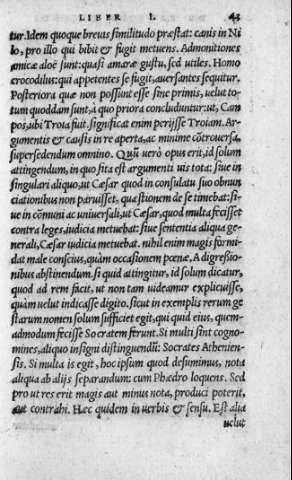 LIBER I. 43
tur. Idem quoque breuis similitudo præstat: canis in Ni
lo, pro illo qui bibit & fugit metuens. Admonitiones
amicæ aloë sunt: quasi amaræ gustu, sed utiles. Homo
crocodilus: qui appetentes se fugit, auersantes sequitur.
Posteriora quæ non possunt esse sine primis, uelut to-
tum quoddam sunt, à quo priora concluduntur: ut, Cam
pos, ubi Troia fuit. significat enim perijsse Troiam. Ar-
gumentis & causis in re aperta, ac minime cõtrouersa,
supersedendum omnino. Quũ uerò opus erit, id solum
attingendum, in quo sita est argumenti uis tota: siue in
singulari aliquo, ut Cæsar quod in consulatu suo obnun
ciationibus non paruisset, quæstionem de se timebat: si-
ue in cõmuni ac uniuersali, ut Cæsar, quod multa fecisset
contra leges, iudicia metuebat: siue sententia aliqua ge-
nerali, Cæsar iudicia metuebat. nihil enim magis formi-
dat male conscius, quàm occasionem pœnæ, A digressio-
nibus abstinendum. si quid attingitur, id solum dicatur,
quod ad rem facit, ut non tam uideamur explicuisse,
quàm uelut indicasse digito. sicut in exemplis rerum ge
starum nomen solum sufficiet egit, qui quid eius, quem-
admodum fecisse Socratem ferunt. Si multi sint cogno-
mines, aliquo insigni distinguendũ: Socrates Athenien-
sis. Si multa is egit, hoc ipsum quod desuminus, nota
aliqua ab alijs separandum: cum Phædro loquens. Sed
pro ut res erit magis aut minus nota, produci poterit,
aut contrahi. Hæc quidem in uerbis & sensu. Est alia
uelut